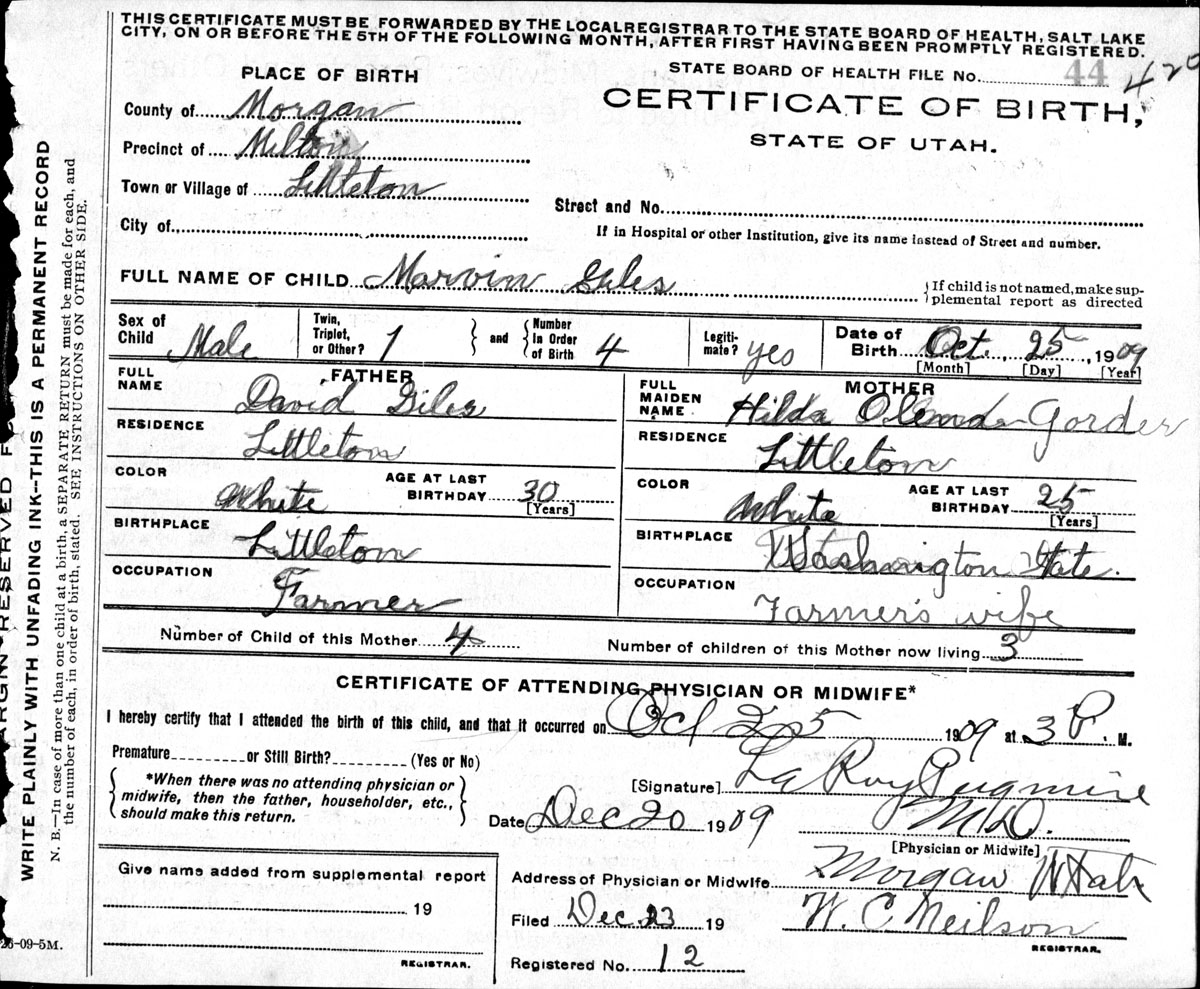 THIS CERTIFICATE MUST BE FORWARDED BY THE LOCAL REGISTRAR TO THE STATE BOARD OF HEALTH, SALT LAKE
CITY, ON OR BEFORE THE 5TH OF THE FOLLOWING MONTH, AFTER FIRST HAVING BEEN PROMPTLY REGISTERED.
PLACE OF BIRTH
STATE BOARD OF HEALTH FILE No. 44 420
County of Morgan
CERTIFICATE OF BIRTH,
Precinct of Milton
STATE OF UTAH.
Town or Village of Littleton
Street and No.
City of
If in Hospital or other Institution, give its name instead of Street and number.
FULL NAME OF CHILD Marvin Giles
If child is not named, make sup-
plemental report as directed
Sex of Child Male
Twin, Triplet, or Other? 1
and
Number In Order of Birth 4
Legiti-mate? yes
Date of Birth Oct. 25, 1909
[Month] [Day] [Year]
FATHER
FULL NAME David Giles
RESIDENCE Littleton
COLOR White
AGE AT LAST BIRTHDAY 30
[Years]
BIRTHPLACE Littleton
OCCUPATION Farmer
MOTHER
FULL MAIDEN NAME Hilda Gorder
RESIDENCE Littleton
COLOR White
AGE AT LAST BIRTHDAY 25
[Years]
BIRTHPLACE Washington State.
OCCUPATION Farmer's wife
Number of Child of this Mother 4
Number of children of this Mother now living 3
CERTIFICATE OF ATTENDING PHYSICIAN OR MIDWIFE*
I hereby certify that I attended the birth of this child, and that it occurred on Oct 25 1909 at 3 P. M.
Premature or Still Birth? (Yes or No)
*When there was no attending physician or
midwife, then the father, householder, etc.,
should make this return.
[Signature] La Roy Pugmire
Date Dec 20 1909
M.D.
[Physician or Midwife]
Give name added from supplemental report
19
REGISTRAR.
Address of Physician or Midwife Morgan Utah
Filed Dec 23 19
W. C. Neilson
REGISTRAR.
Registered No. 12
26-09-5M.
WRITE PLAINLY WITH UNFADING INK--THIS IS A PERMANENT RECORD
N. B.—In case of more than one child at a birth, a SEPARATE RETURN must be made for each, and
the number of each, in order of birth, stated. SEE INSTRUCTIONS ON OTHER SIDE.